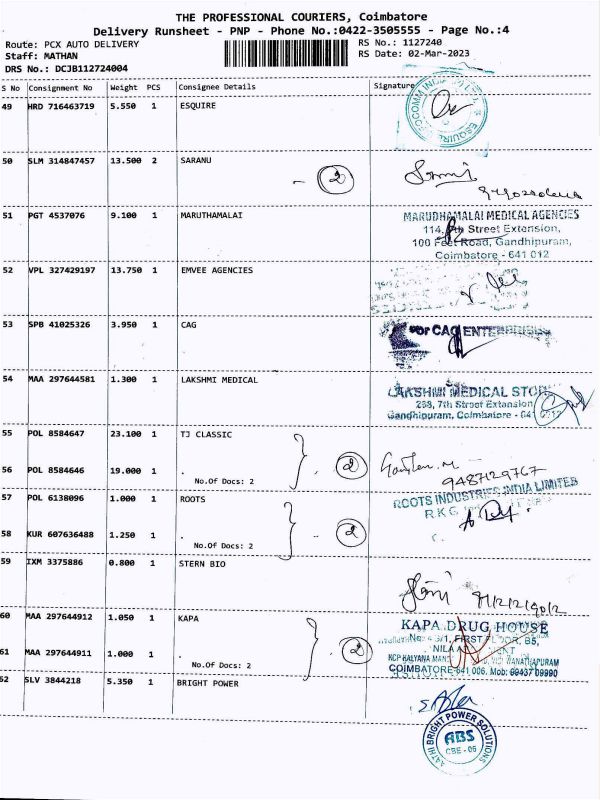 THE PROFESSIONAL COURIERS, Coimbatore
Delivery Runsheet - PNP - Phone No.:0422-3505555 - Page No.:4
Route: PCX AUTO DELIVERY RS No.: 1127240
Staff: MATHAN RS Date: 02-Mar-2023
DRS No.: DCJB112724004
S No Consignment No Weight PCS Consignee Details Signature
49 HRD 716463719 5.550 1 ESQUIRE
50 SLM 314847457 13.500 2 SARANU
- 2
51 PGT 4537076 9.100 1 MARUTHAMALAI
MARUDHAMALAI MEDICAL AGENCIES
114, 7th Street Extension,
100 Feet Road, Gandhipuram,
Coimbatore - 641 012
52 VPL 327429197 13.750 1 EMVEE AGENCIES
53 SPB 41025326 3.950 1 CAG
For CAG ENTERPRISES
54 MAA 297644581 1.300 1 LAKSHMI MEDICAL
LAKSHMI MEDICAL STORE
268, 7th Street Extension
Gandhipuram, Coimbatore - 641 012
55 POL 8584647 23.100 1 TJ CLASSIC
2
9487129767
56 POL 8584646 19.000 1 .
No.Of Docs: 2
57 POL 6138096 1.000 1 ROOTS
ROOTS INDUSTRIES INDIA LIMITED
R.K.G
2
58 KUR 607636488 1.250 1 .
No.Of Docs: 2
59 IXM 3375886 0.800 1 STERN BIO
60 MAA 297644912 1.050 1 KAPA
KAPA DRUG HOUSE
FIRST FLOOR, B5,
2
61 MAA 297644911 1.000 1 .
No.Of Docs: 2
KCP KALYANA
COIMBATORE-641 006. Mob: 99437 09990
62 SLV 3844218 5.350 1 BRIGHT POWER
AATHI BRIGHT POWER SOLUTIONS
ABS
CBE - 06